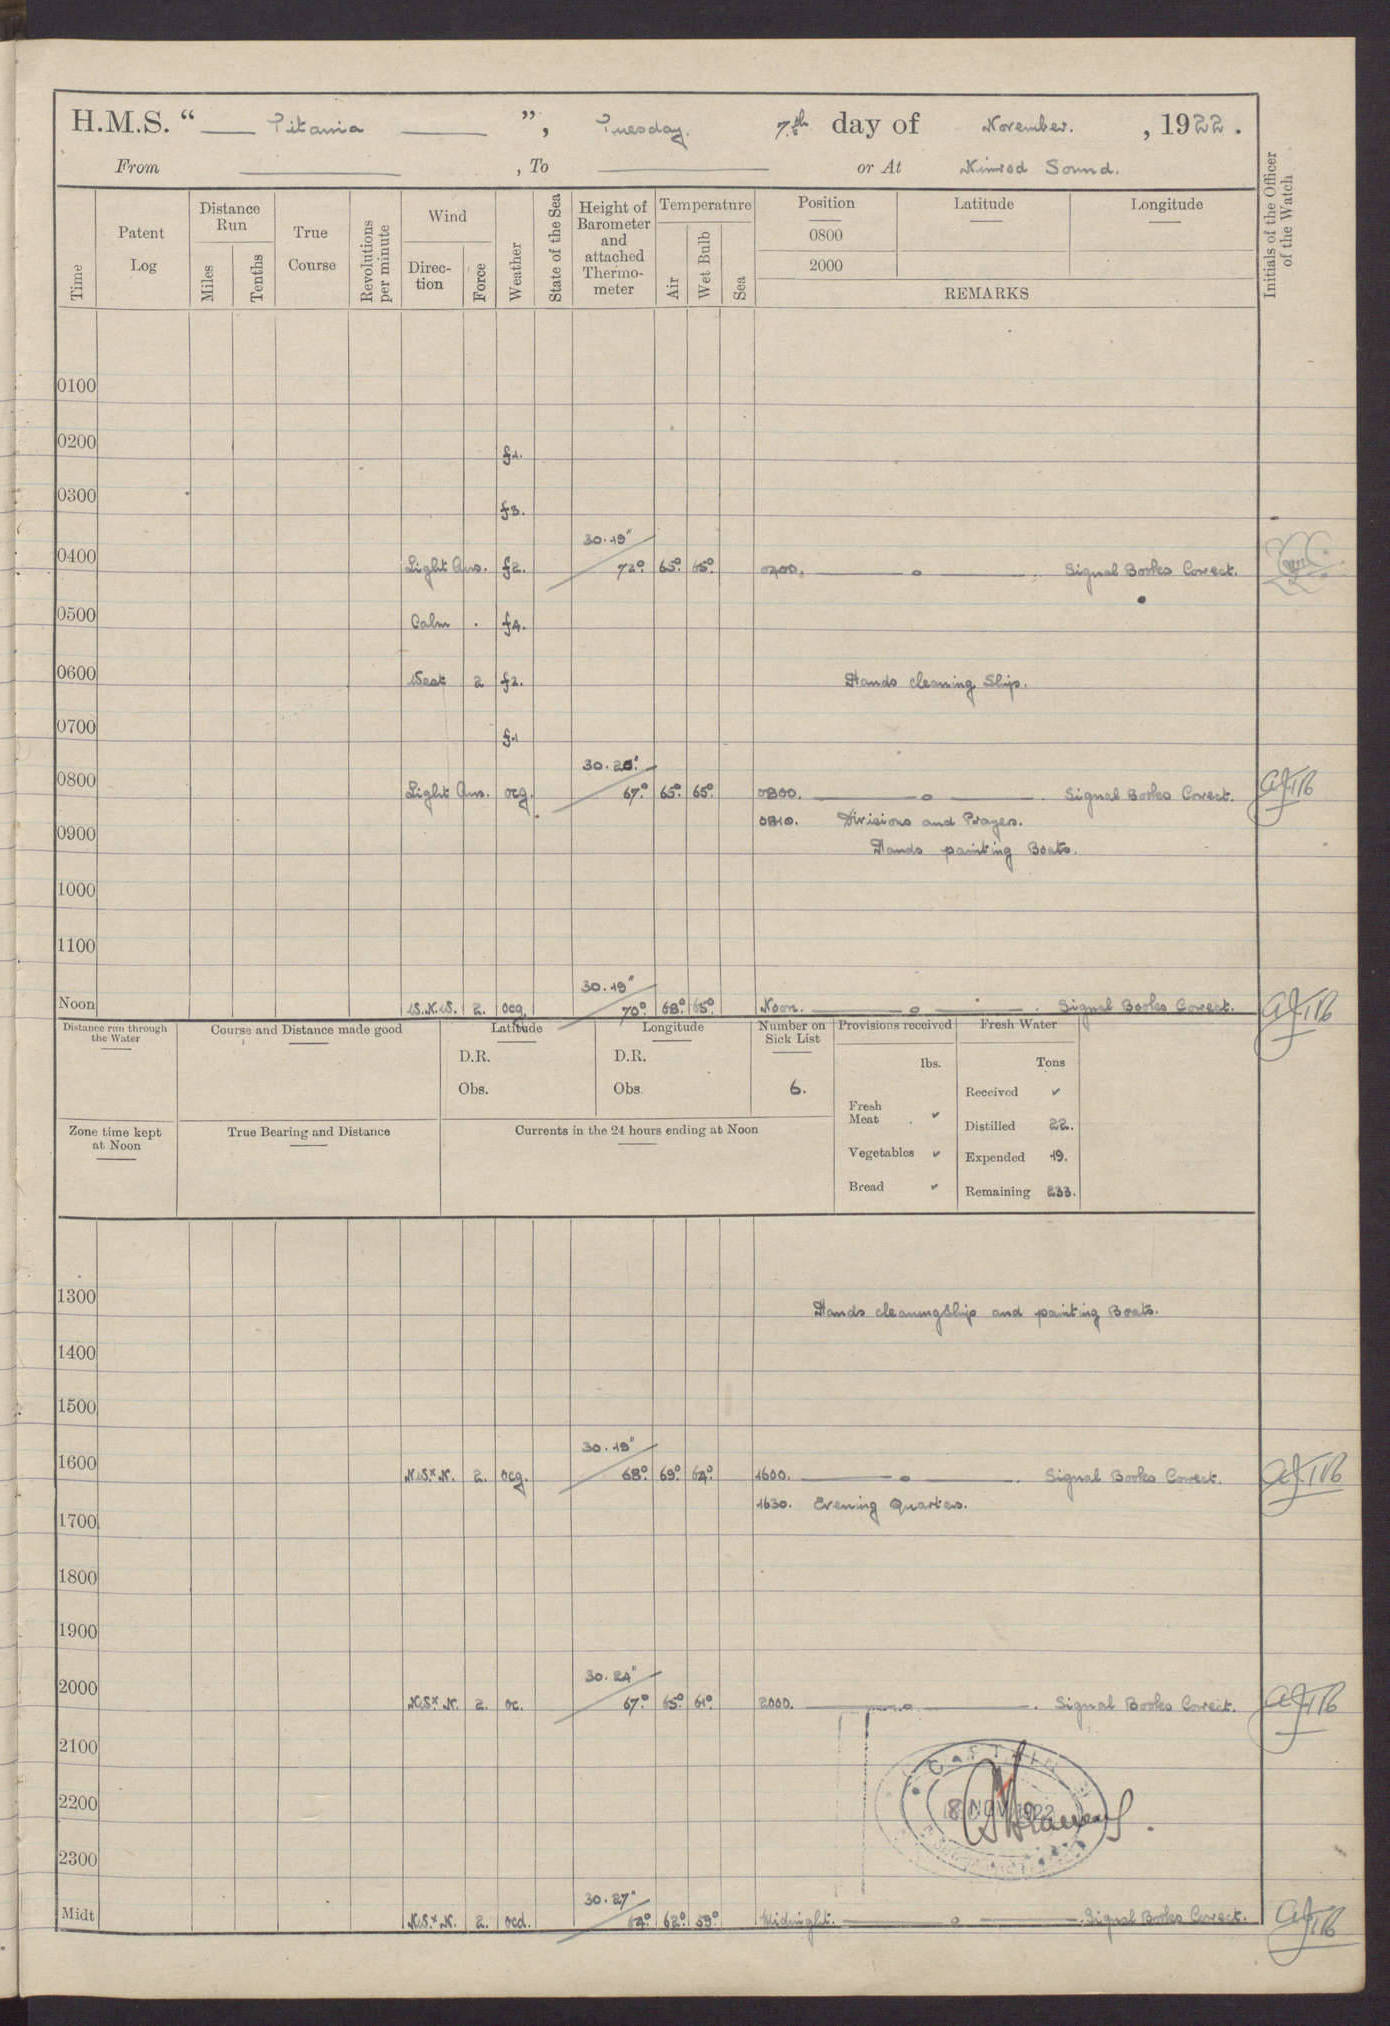 H.M.S. “ Titania ”, Tuesday. 7th day of November. , 1922.
From , To or At Nimrod Sound.
Time
Patent Log
Distance Run
Miles
Tenths
True Course
Revolutions per minute
Wind
Direc-tion
Force
Weather
State of the Sea
Height of Barometer and attached Thermo-meter
Temperature
Air
Wet Bulb
Sea
Position
0800
2000
Latitude
Longitude
REMARKS
Initials of the Officer of the Watch
0100
0200 f1.
0300 f3.
30.19"
0400 Light Airs. f2. 72° 65° 65° 0400. Signal Books Correct.
0500 Calm . f4.
0600 West 2 f2. Hands cleaning Ship.
0700 f1
30.20"
0800 Light Airs. ocg. 67° 65° 65° 0800. Signal Books Correct.
0810. Divisions and Prayers.
0900 Hands painting Boats.
1000
1100
30.19"
Noon W.N.W. 2. ocg 70° 68° 65° Noon. Signal Books Correct.
Distance run through the Water
Course and Distance made good
Latitude
D.R.
Obs.
Longitude
D.R.
Obs.
Number on Sick List
6.
Provisions received
lbs.
Fresh Meat ✓
Vegetables ✓
Bread ✓
Fresh Water
Tons
Received ✓
Distilled 22.
Expended 19.
Remaining 233.
Zone time kept at Noon
True Bearing and Distance
Currents in the 24 hours ending at Noon
1300 Hands cleaning Ship and painting Boats.
1400
1500
30.19"
1600 N.W.×N. 2. ocg. 68° 69° 64° 1600. Signal Books Correct.
1630. Evening Quarters.
1700
1800
1900
30.24"
2000 N.W.×N. 2. oc. 67° 65° 61° 2000. Signal Books Correct.
2100
CAPTAIN
2200 8 NOV 1922
2300
30.27"
Midt N.W.×N. 2. ocd. 64° 62° 59° Midnight. Signal Books Correct.